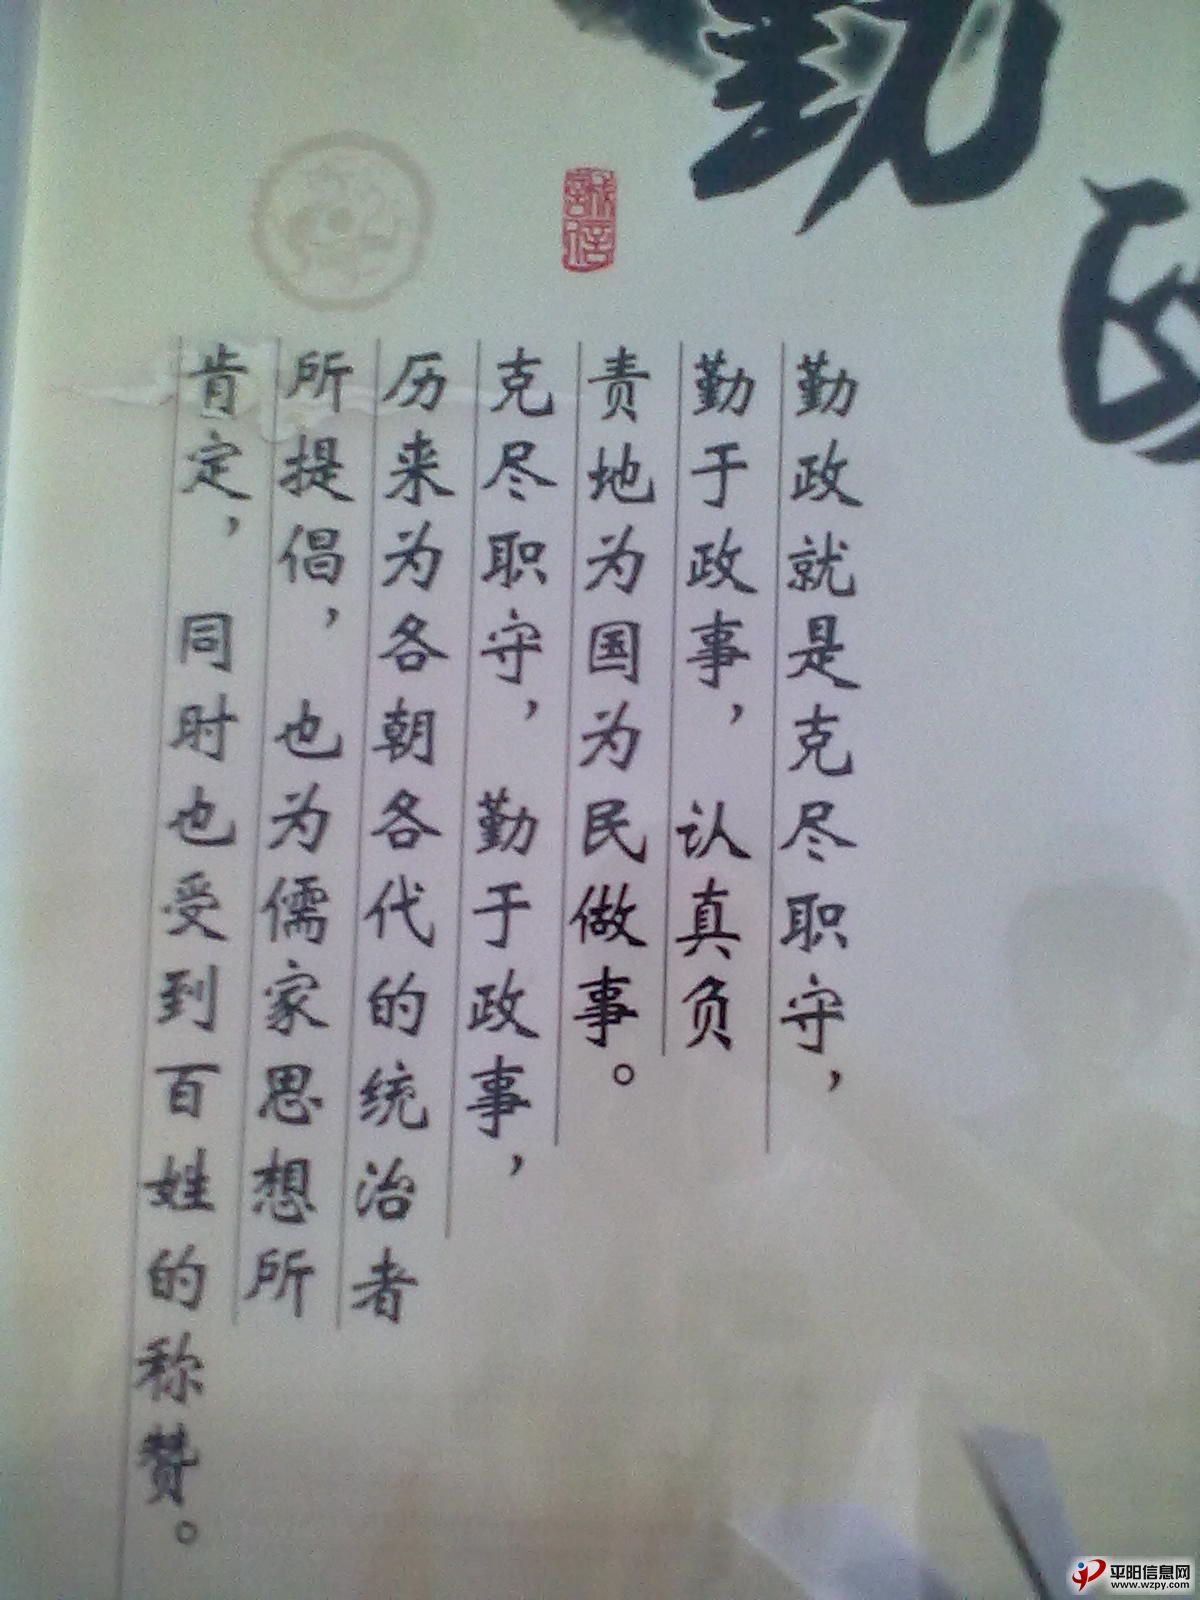 勤政
诚信
勤政就是克尽职守，
勤于政事，认真负
责地为国为民做事。
克尽职守，勤于政事，
历来为各朝各代的统治者
所提倡，也为儒家思想所
肯定，同时也受到百姓的称赞。
平阳信息网
www.wzpy.com